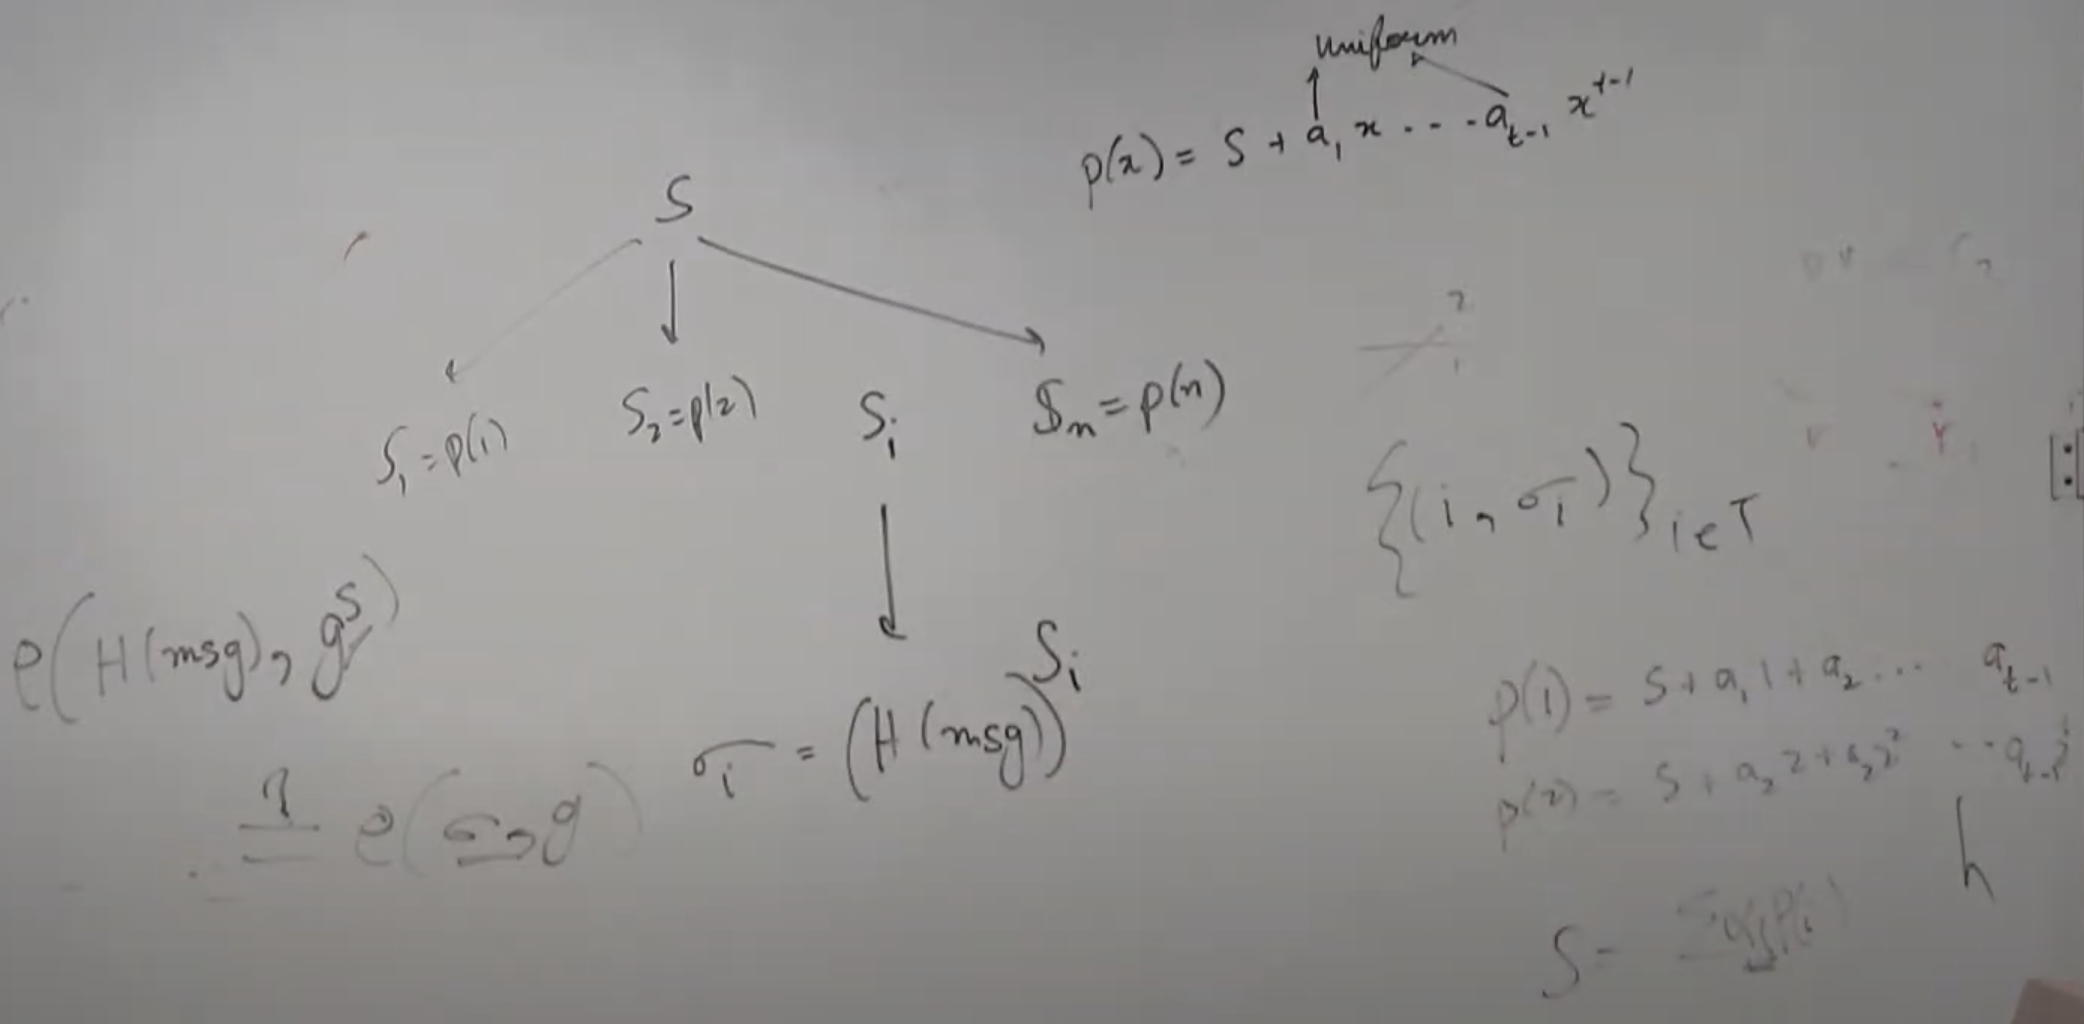 uniform
p(x) = S + a₁ x . . . . a_{t-1} x^{t-1}
S
S₁ = p(1)
S₂ = p(2)
Sᵢ
Sₙ = p(n)
{(i, σᵢ)}_{i∈T}
e(H(msg), g^S)
σᵢ = (H(msg))^{Sᵢ}
≟ e(σ, g)
p(1) = S + a₁ 1 + a₂ ... a_{t-1}
p(2) = S + a₂ 2 + a₂ 2² ...
h
S =